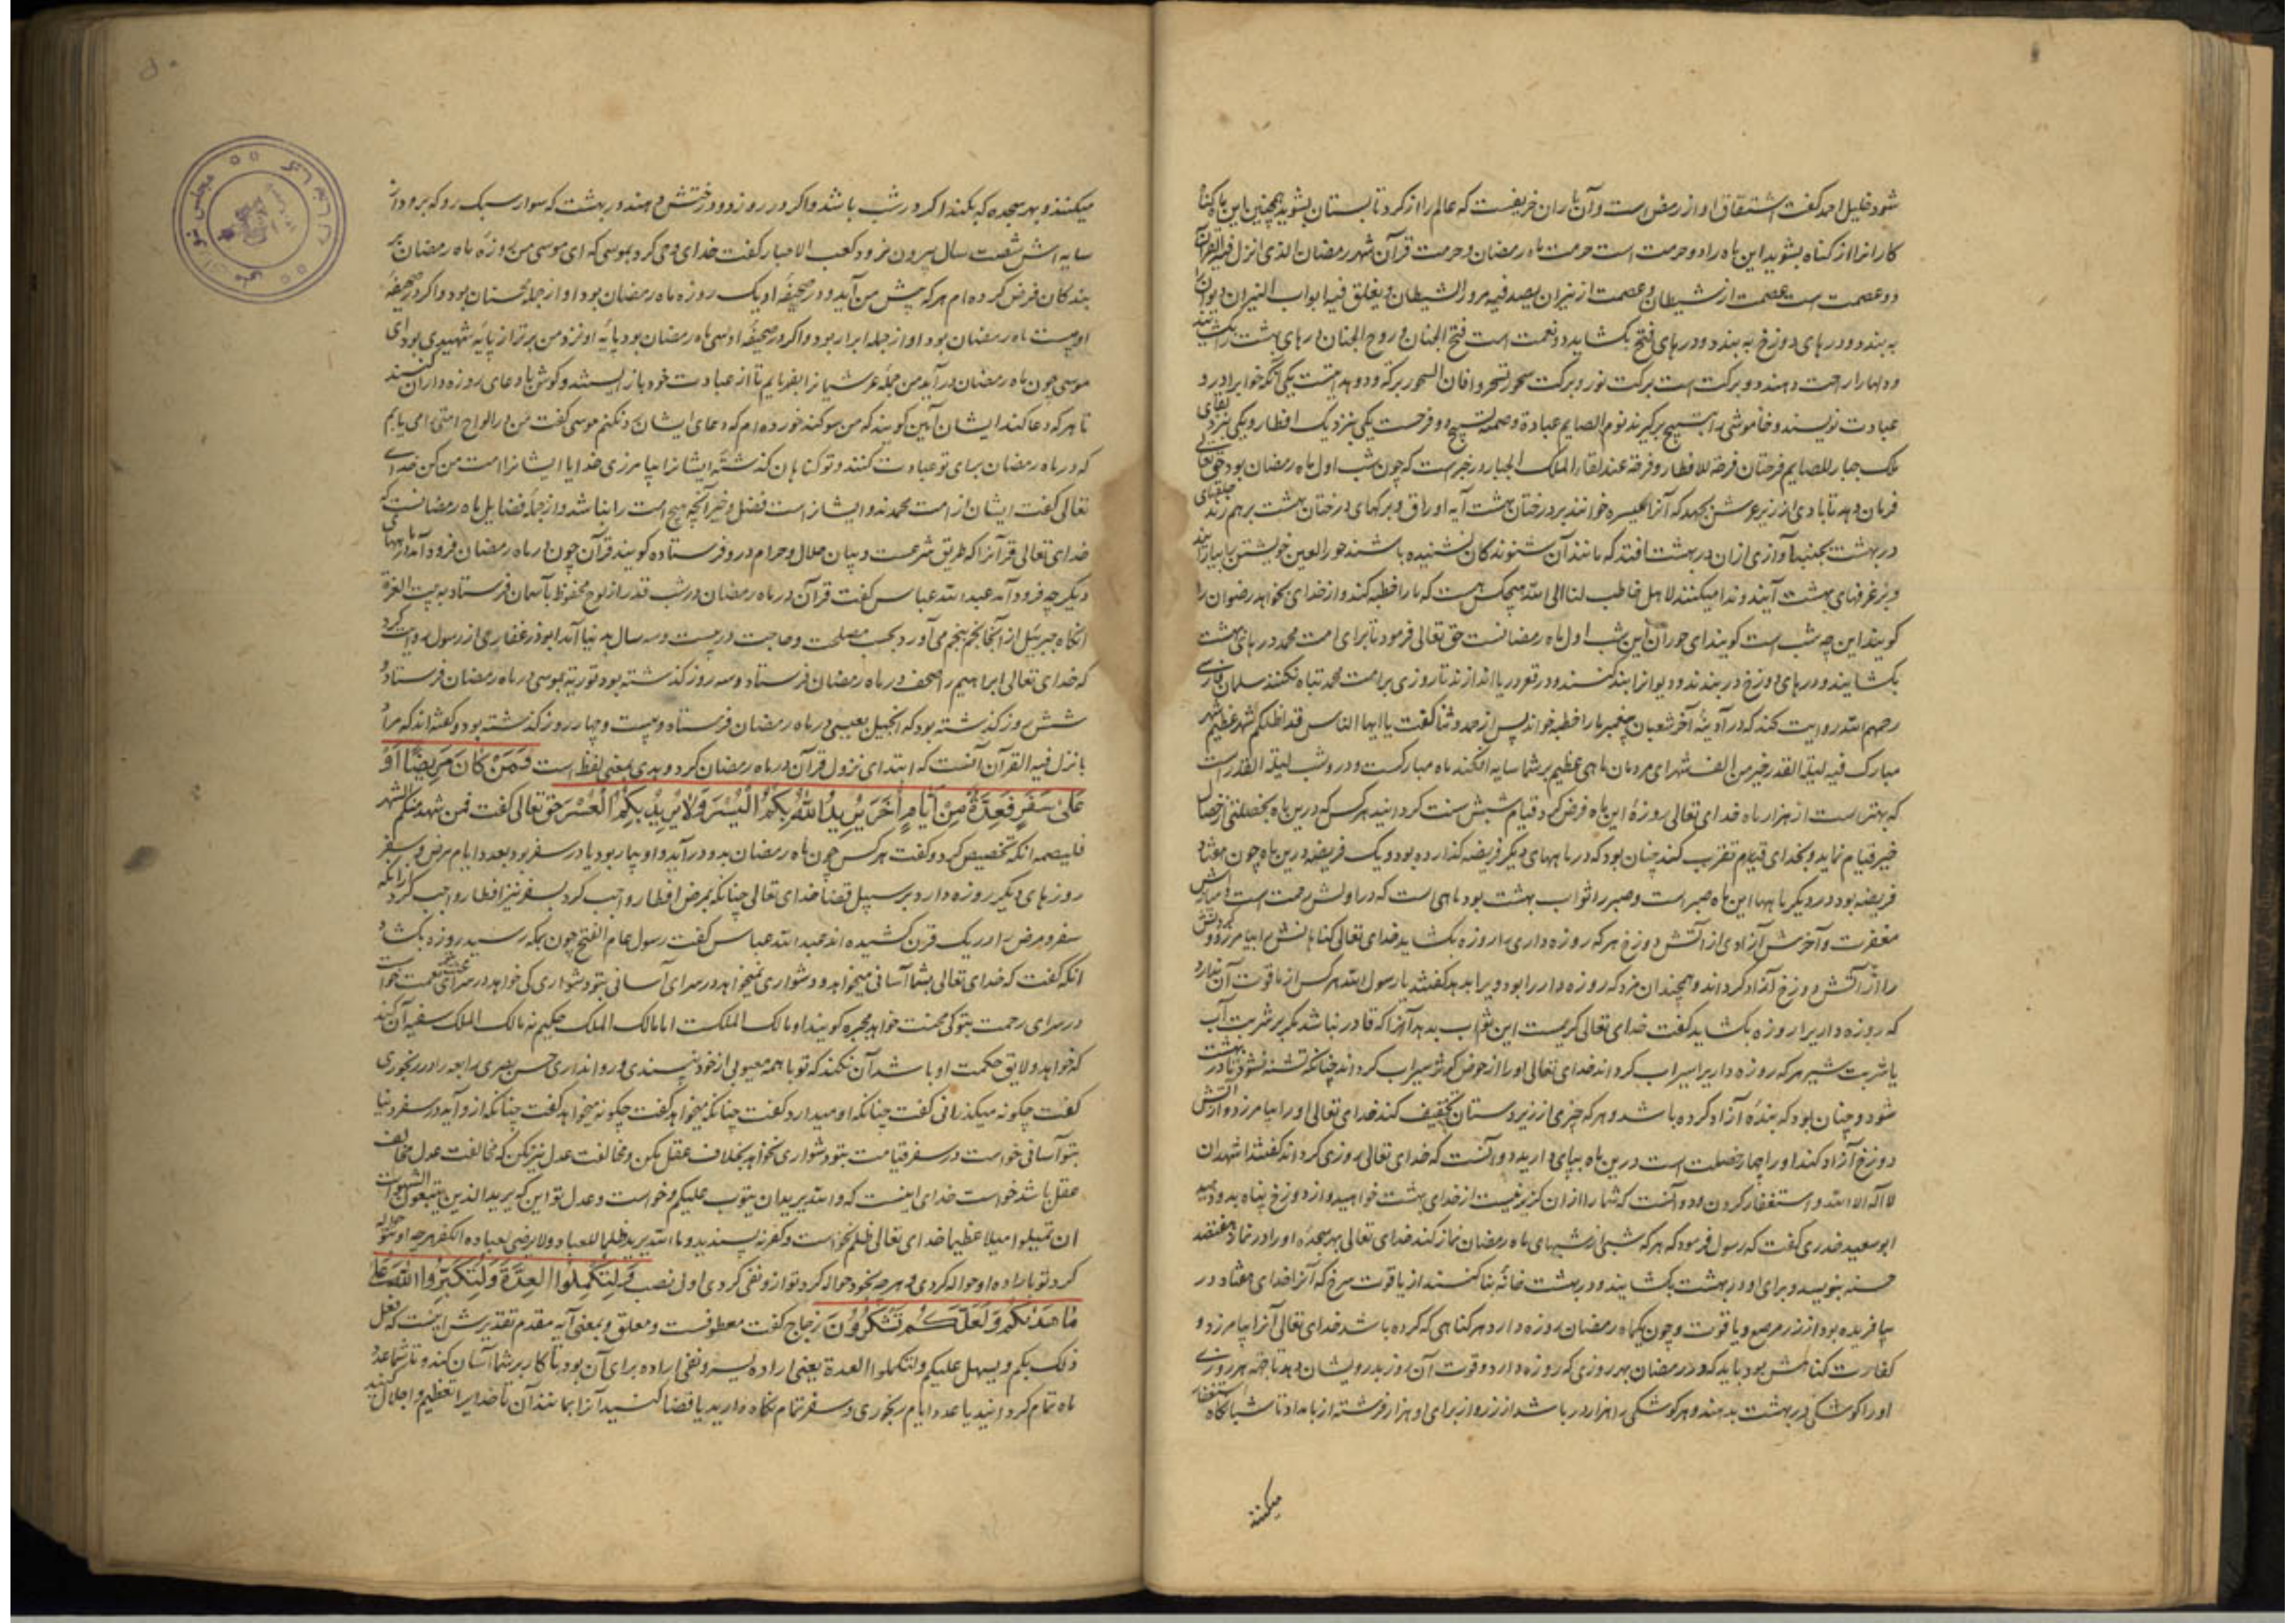 شود خلیل احمد کفت اشتقاق او از رمض است وآن باران خریفست که عالم را از کرد تابستان بشوید همچنین این ماه کناه
کارانرا از کناه بشوید این ماه را دو حرمت است حرمت ماه رمضان وحرمت قرآن شهر رمضان الذی انزل فیه القرآن
دو عصمت است عصمت از شیطان وعصمت از نیران یصفد فیه مرد الشیطان ویغلق فیه ابواب النیران دیوانرا
به بندد ودرهای دوزخ به بندد ودرهای فتح بکشاید دو نعمت است فتح الجنان وروح الجنان درهای بهشت را بکشایند
ودلها را راحت دهند دو برکت است برکت نور وبرکت سحور تسحروا فان السحور برکة ودو هدیتست یکی آنکه خواب او را در
عبادت نویسند وخاموشی را به تسبیح برکیرند نوم الصایم عبادة وصمته تسبیح دو فرحست یکی بنزدیک افطار ویکی بنزد لقای
ملک جبار للصایم فرحتان فرحة للافطار وفرحة عند لقاء الملک الجبار در خبر است که چون شب اول ماه رمضان بود حق تعالی
فرمان دهد تا بادی از زیر عرش بجهد که آنرا مثیره خوانند بر درختان بهشت آید اوراق وبرکهای درختان بهشت برهم زند حلقهای
در بهشت بجنباند آوازی ازان در بهشت افتد که مانند آن شنوندکان نشنیده باشند حور العین خویشتن را بیارایند
وبر غرفهای بهشت آیند وندا میکنند لاهل خاطب لنا الی الله هیچکس هست که ما را خطبه کند واز خدای بخواهد رضوان را
کویند این چه شب است کوید ای حوران این شب اول ماه رمضانست حق تعالی فرمود تا برای امت محمد درهای بهشت
بکشایند ودرهای دوزخ در بندند ودیوانرا بند کنند ودر قعر دریا اندازند تا روزی بر امت محمد تباه نکنند سلمان فارسی
رحمه الله روایت کند که در آدینهٔ آخر شعبان پیغمبر ما را خطبه خواند پس از حمد وثنا کفت یا ایها الناس قد اظلکم شهر عظیم شهر
مبارک فیه لیلة القدر خیر من الف شهر ای مردمان ماهی عظیم بر شما سایه افکند ماه مبارکست ودرو شب لیلة القدر است
که بهتر است از هزار ماه خدای تعالی روزهٔ این ماه فرض کرد وقیام شبش سنت کردانید هر کس که درین ماه بخصلتی از خصال
خیر قیام نماید وبخدای تقرب کند چنان بود که در ماههای دیکر فریضه کذارده بود ویک فریضه درین ماه چون هفتاد
فریضه بود در دیکر ماهها این ماه صبر است وصبر را ثواب بهشت بود ماهی است که در اولش رحمت است ومیانش
مغفرت وآخرش آزادی از آتش دوزخ هر که روزه داری را روزه بکشاید خدای تعالی کناهانش را بیامرزد وکردنش
را از آتش دوزخ آزاد کرداند وهمچندان مزد که روزه دار را بود ویرا بدهد کفتند یا رسول الله هر کس از ما قوت آن ندارد
که روزه داریرا روزه بکشاید کفت خدای تعالی کریمست این ثواب بدهد آنرا که قادر نباشد مکر بر شربت آب
یا شربت شیر هر که روزه داریرا سیراب کرداند خدای تعالی او را از حوض کوثر سیراب کرداند چنانکه تشنه نشود تا در بهشت
شود وچنان بود که بندهٔ آزاد کرده باشد وهر که چیزی از زیردستان تخفیف کند خدای تعالی او را بیامرزد واز آتش
دوزخ آزاد کند او را چهار خصلت است درین ماه بپای دارید دو آنست که خدای تعالی روزی کرداند کفتند اشهد ان
لا اله الا الله واستغفار کردن ودو آنست که شما را ازان کزیر نیست از خدای بهشت خواهید واز دوزخ پناه بدو دهید
ابو سعید خدری کفت که رسول فرمود که هر که شبی از شبهای ماه رمضان نماز کند خدای تعالی بهر سجدهٔ او را در نماز هفتصد
حسنه بنویسد وبرای او در بهشت بکشایند ودر بهشت خانهٔ بنا کنند از یاقوت سرخ که آنرا خدای هفتاد در
بیافریده بود از زر مرصع ویاقوت وچون یکماه رمضان روزه دارد هر کناهی که کرده باشد خدای تعالی آنرا بیامرزد و
کفارت کناهش بود باید که در رمضان بهر روزی که روزه دارد وقوت آن روز بدرویشان دهد تا حق هر روزی
او را کوشکی در بهشت بدهند وهر کوشکی را هزار در باشد از زر واز برای او هزار فرشته از بامداد تا شبانکاه استغفار
میکنند
میکنند وبهر سجده که بکند اکر در شب باشد واکر در روز دو درختش دهند در بهشت که سوار سبک رو که برود از
سایه اش شصت سال بیرون نرود کعب الاحبار کفت خدای وحی کرد بموسی که ای موسی من روزهٔ ماه رمضان بر
بندکان فرض کرده ام هر که پیش من آید ودر صحیفهٔ او یک روزه ماه رمضان بود او از جمله محسنان بود واکر در صحیفهٔ
او بیست ماه رمضان بود او از جمله ابرار بود واکر در صحیفهٔ او سی ماه رمضان بود پایهٔ او نزد من برتر از پایهٔ شهیدی بود ای
موسی چون ماه رمضان در آید من جملهٔ عرشیانرا بفرمایم تا از عبادت خود باز ایستند وکوش با دعای روزه داران کنند
تا هر که دعا کند ایشان آمین کویند که من سوکند خورده ام که دعای ایشان رد نکنم موسی کفت من در الواح امتی را می یابم
که در ماه رمضان برای تو عبادت کنند وتو کناهان کذشتهٔ ایشانرا بیامرزی خدایا ایشانرا امت من کن خدای
تعالی کفت ایشان از امت محمدند وایشانراست فضل وخیر آنچه هیچ امت را نباشد واز جملهٔ فضایل ماه رمضانست که
خدای تعالی قرآنرا که طریق شرعست وبیان حلال وحرام درو فرستاده کویند قرآن چون در ماه رمضان فرود آمد در ماههای
دیکر چه فرود آمد عبد الله عباس کفت قرآن در ماه رمضان در شب قدر از لوح محفوظ بآسمان فرستاد به بیت العزة
آنکاه جبرییل از آنجا نجم بنجم می آورد بحسب مصلحت وحاجت در بیست وسه سال بدنیا آمد ابوذر غفاری از رسول روایت کرد
که خدای تعالی ابراهیم را صحف در ماه رمضان فرستاد وسه روز کذشته بود توریة بموسی در ماه رمضان فرستاد و
شش روز کذشته بود که انجیل بعیسی در ماه رمضان فرستاد وبیست وچهار روز کذشته بود وکفته اند که مراد
بانزل فیه القرآن آنست که ابتدای نزول قرآن در ماه رمضان کرد وهدی بمعنی لفظ است فَمَنْ كَانَ مَرِيضًا أَوْ
عَلَىٰ سَفَرٍ فَعِدَّةٌ مِنْ أَيَّامٍ أُخَرَ يُرِيدُ اللَّهُ بِكُمُ الْيُسْرَ وَلَا يُرِيدُ بِكُمُ الْعُسْرَ حق تعالی کفت فمن شهد منکم الشهر
فلیصمه آنکه تخصیص کرد وکفت هر کس چون ماه رمضان بدو درآید واو بیمار بود یا در سفر بود بعدد ایام مرض وسفر
روزهای دیکر روزه دارد بر سبیل قضا خدای تعالی چنانکه بمرض افطار واجب کرد بسفر نیز افطار واجب کرد از آنکه
سفر ومرض را در یک قرن کشیده اند عبد الله عباس کفت رسول عام الفتح چون بمکه رسید روزه بکشاد
آنکه کفت که خدای تعالی بشما آسانی میخواهد ودشواری نمیخواهد در سرای آسانی بتو دشواری کی خواهد در سرای نعمت خواست
در سرای رحمت بتو کی محنت خواهد مجبره کویند او مالک الملکست اما مالک الملک حکیم نه مالک الملک سفیه آن کند
که خواهد ولایق حکمت او باشد آن نکند که تو با همه معیوبی از خود نپسندی وروا نداری حسن بصری رابعه را در رنجوری
کفت چکونه میکذرانی کفت چنانکه او میدارد کفت چنانکه میخواهد کفت چکونه میخواهد کفت چنانکه ازو آید در سفر دنیا
بتو آسانی خواست در سفر قیامت بتو دشواری نخواهد بخلاف عقل مکن ومخالفت عدل نیز مکن که مخالفت عدل مخالف
عقل باشد خواست خدای اینست که والله یرید ان یتوب علیکم وخواست وعدل تو این که یرید الذین یتبعون الشهوات
ان تمیلوا میلا عظیما خدای تعالی ظلم نخواست وکفر نه پسندید وما الله یرید ظلما للعباد ولا یرضی لعباده الکفر هر چه او بتو حواله
کرد تو باراده او حواله کردی وهر چه بخود حواله کرد تو ازو نفی کردی اول نصب وَلِتُكْمِلُوا الْعِدَّةَ وَلِتُكَبِّرُوا اللَّهَ عَلَىٰ
مَا هَدَاكُمْ وَلَعَلَّكُمْ تَشْكُرُونَ زجاج کفت معطوفست ومعلق وبمعنی آیه مقدم تقدیرش اینست که فعل
ذلک بکم ویسهل علیکم ولتکملوا العدة یعنی اراده یسر ونفی اراده برای آن بود تا کار بر شما آسان کند وتا شما عدد
ماه تمام کردانید یا عدد ایام رنجوری وسفر تمام نکاه دارید یا قضا کنید آنرا بمانند آن تا خدایرا تعظیم واجلال کنید